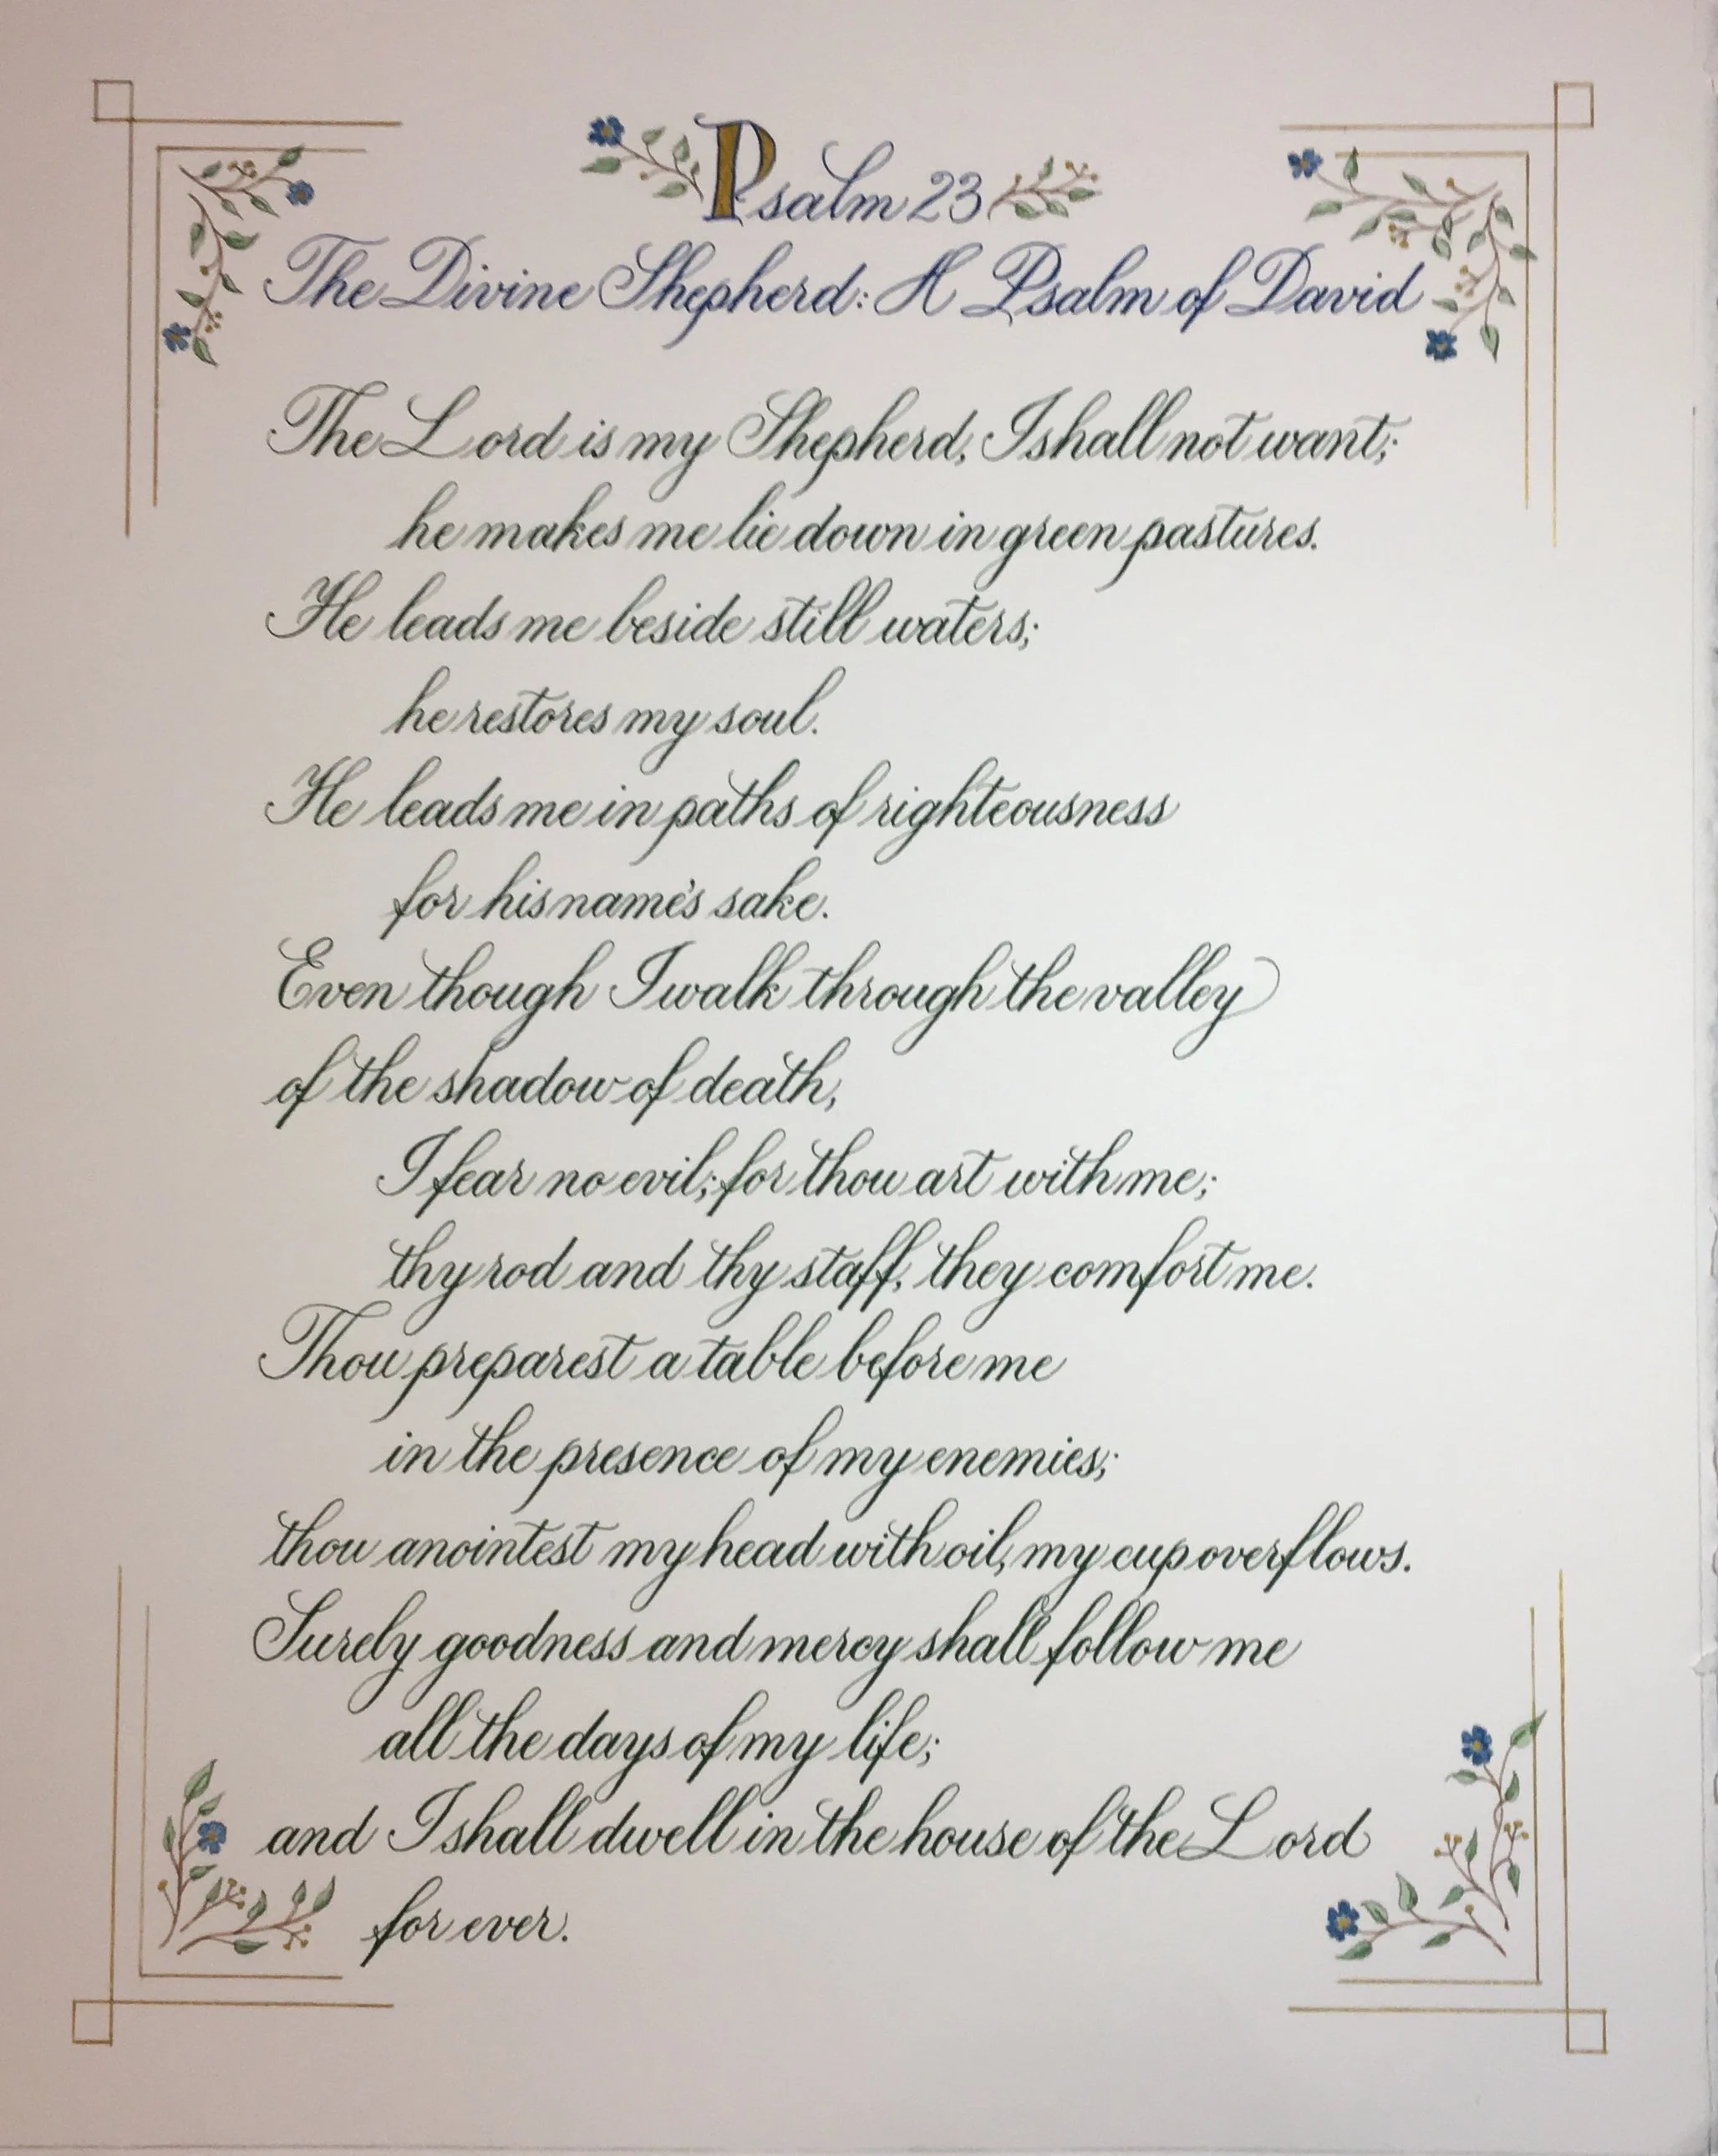 Psalm 23
The Divine Shepherd: A Psalm of David
The Lord is my Shepherd, I shall not want;
he makes me lie down in green pastures.
He leads me beside still waters;
he restores my soul.
He leads me in paths of righteousness
for his name's sake.
Even though I walk through the valley
of the shadow of death,
I fear no evil; for thou art with me;
thy rod and thy staff, they comfort me.
Thou preparest a table before me
in the presence of my enemies;
thou anointest my head with oil, my cup overflows.
Surely goodness and mercy shall follow me
all the days of my life;
and I shall dwell in the house of the Lord
for ever.